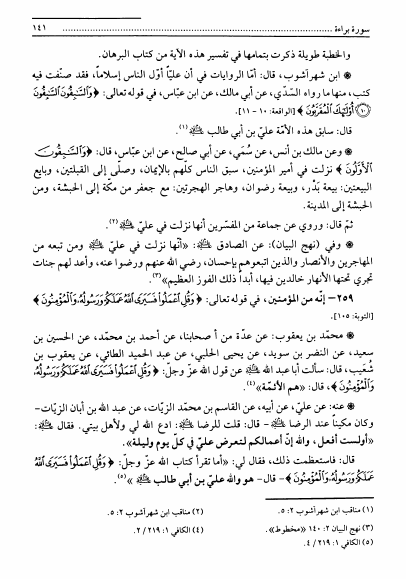 سورة براءة ........ ١٤١
والخطبة طويلة ذكرت بتمامها في تفسير هذه الآية من كتاب البرهان.
❋ ابن شهرآشوب، قال: أمّا الروايات في أن عليّاً أوّل الناس إسلاماً، فقد صنّفت فيه
كتب، منها ما رواه السدّي، عن أبي مالك، عن ابن عبّاس، في قوله تعالى: ﴿وَالسَّٰبِقُونَ السَّٰبِقُونَ
۝١٠ أُوْلَٰٓئِكَ الْمُقَرَّبُونَ﴾ [الواقعة: ١٠ - ١١].
قال: سابق هذه الأمّة عليّ بن أبي طالب ﵇(١).
❋ وعن مالك بن أنس، عن سُمَي، عن أبي صالح، عن ابن عبّاس، قال: ﴿وَالسَّٰبِقُونَ
الْأَوَّلُونَ﴾ نزلت في أمير المؤمنين، سبق الناس كلّهم بالإيمان، وصلّى إلى القبلتين، وبايع
البيعتين: بيعة بَدْر، وبيعة رضوان، وهاجر الهجرتين: مع جعفر من مكّة إلى الحبشة، ومن
الحبشة إلى المدينة.
ثمّ قال: وروي عن جماعة من المفسّرين أنها نزلت في عليّ ﵇(٢).
❋ وفي (نهج البيان): عن الصادق ﵇: «أنّها نزلت في عليّ ﵇ ومن تبعه من
المهاجرين والأنصار والذين اتبعوهم بإحسان، رضي الله عنهم ورضوا عنه، وأعد لهم جنات
تجري تحتها الأنهار خالدين فيها، أبداً ذلك الفوز العظيم»(٣).
٢٥٩- إنّه من المؤمنين، في قوله تعالى: ﴿وَقُلِ اعْمَلُوا فَسَيَرَى اللَّهُ عَمَلَكُمْ وَرَسُولُهُ وَالْمُؤْمِنُونَ﴾
[التوبة: ١٠٥].
❋ محمّد بن يعقوب: عن عدّة من أصحابنا، عن أحمد بن محمّد، عن الحسين بن
سعيد، عن النضر بن سويد، عن يحيى الحلبي، عن عبد الحميد الطائي، عن يعقوب بن
شُعَيب، قال: سألت أبا عبد الله ﵇ عن قول الله عزّ وجلّ: ﴿وَقُلِ اعْمَلُوا فَسَيَرَى اللَّهُ عَمَلَكُمْ وَرَسُولُهُ
وَالْمُؤْمِنُونَ﴾، قال: «هم الأئمّة»(٤).
❋ عنه: عن عليّ، عن أبيه، عن القاسم بن محمّد الزيّات، عن عبد الله بن أبان الزيّات-
وكان مكيناً عند الرضا ﵇- قال: قلت للرضا ﵇: ادع الله لي ولأهل بيتي. فقال:
«أولست أفعل، والله إنّ أعمالكم لتعرض عليّ في كلّ يوم وليلة».
قال: فاستعظمت ذلك، فقال لي: «أما تقرأ كتاب الله عزّ وجلّ: ﴿وَقُلِ اعْمَلُوا فَسَيَرَى اللَّهُ
عَمَلَكُمْ وَرَسُولُهُ وَالْمُؤْمِنُونَ﴾- قال- هو والله عليّ بن أبي طالب ﵇»(٥).
(١) مناقب ابن شهرآشوب ٢: ٥. (٢) مناقب ابن شهرآشوب ٢: ٥.
(٣) نهج البيان ٢: ١٤٠ «مخطوط». (٤) الكافي ١: ٢١٩/ ٢.
(٥) الكافي ١: ٢١٩/ ٤.